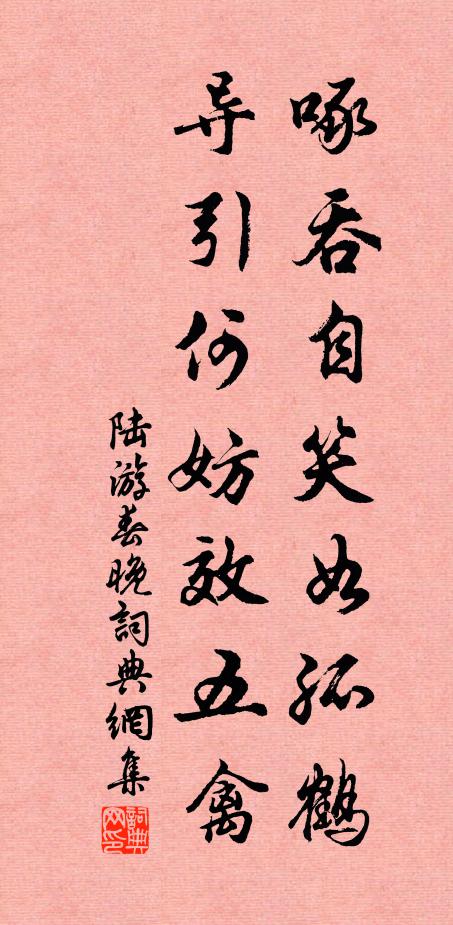 啄吞自笑如孤鹤
导引何妨效五禽
陆游春晚詞典網集
詞典网印